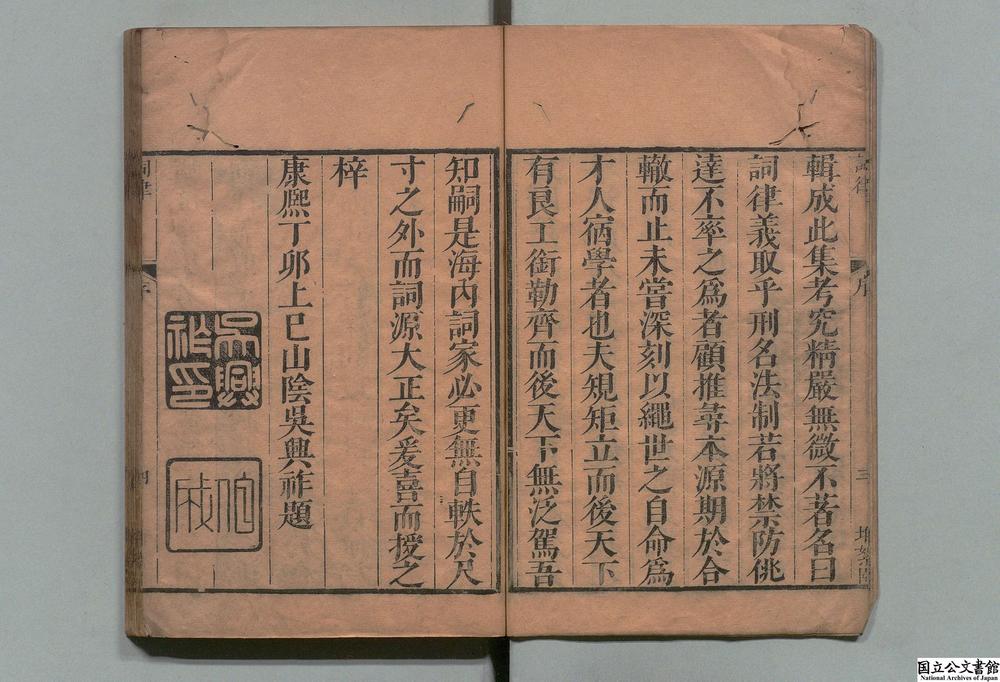 輯成此集考究精嚴無微不著名曰
詞律義取乎刑名法制若將禁防佻
達不率之爲者顧推尋本源期於合
轍而止未嘗深刻以繩世之自命爲
才人宿學者也夫規矩立而後天下
有良工銜勒齊而後天下無泛駕吾
知嗣是海內詞家必更無自軼於尺
寸之外而詞源大正矣爰喜而授之
梓
康熙丁卯上巳山陰吳興祚題
吳興
祚印
伯
成
詞律
序
三
堆絮園
詞律
四
国立公文書館
National Archives of Japan